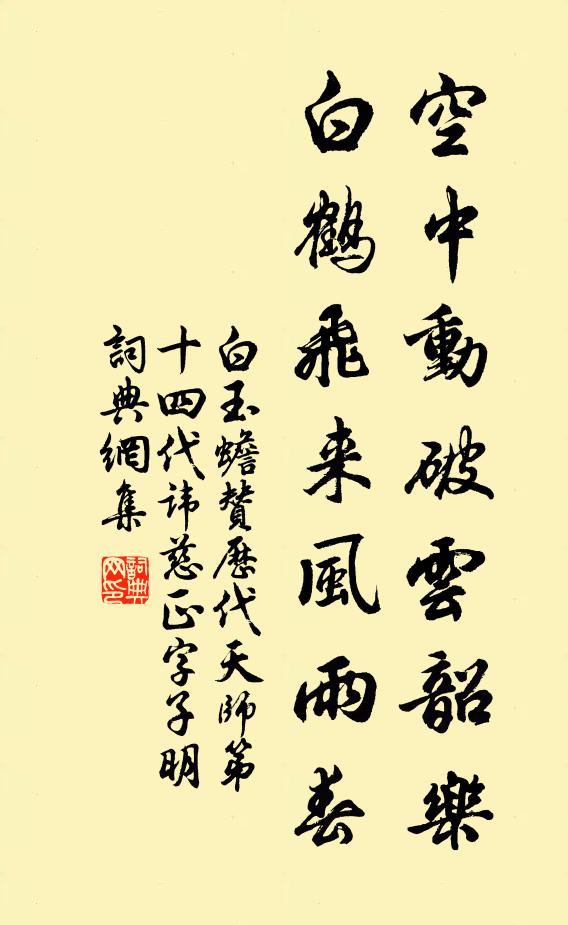 空中動破雲韶樂
白鶴飛来風雨春
白玉蟾贊歷代天師第
十四代諱慈正字子明
詞典網集
詞典网印